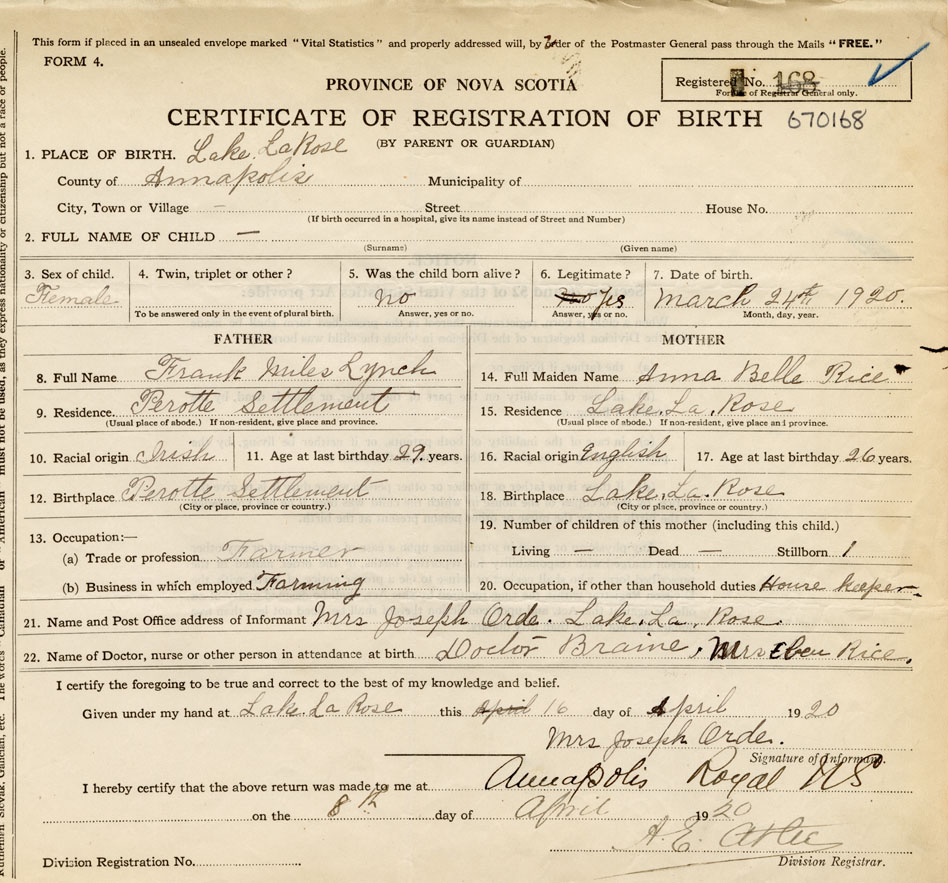 This form if placed in an unsealed envelope marked "Vital Statistics" and properly addressed will, by order of the Postmaster General pass through the Mails "FREE."
FORM 4.
Registered No. 168
For use of Registrar General only.
PROVINCE OF NOVA SCOTIA
CERTIFICATE OF REGISTRATION OF BIRTH 670168
(BY PARENT OR GUARDIAN)
1. PLACE OF BIRTH. Lake LaRose
County of Annapolis Municipality of
City, Town or Village — Street House No.
(If birth occurred in a hospital, give its name instead of Street and Number)
2. FULL NAME OF CHILD —
(Surname) (Given name)
3. Sex of child. 4. Twin, triplet or other? 5. Was the child born alive? 6. Legitimate? 7. Date of birth.
Female no No Yes March 24th 1920.
To be answered only in the event of plural birth. Answer, yes or no. Answer, yes or no. Month, day, year.
FATHER MOTHER
8. Full Name Frank Miles Lynch 14. Full Maiden Name Anna Belle Rice
9. Residence. Perotte Settlement 15. Residence Lake La Rose
(Usual place of abode.) If non-resident, give place and province. (Usual place of abode.) If non-resident, give place and province.
10. Racial origin Irish 11. Age at last birthday 29 years. 16. Racial origin English 17. Age at last birthday 26 years.
12. Birthplace Perotte Settlement 18. Birthplace Lake La Rose
(City or place, province or country.) (City or place, province or country.)
13. Occupation:— 19. Number of children of this mother (including this child.)
(a) Trade or profession Farmer Living — Dead — Stillborn 1
(b) Business in which employed Farming 20. Occupation, if other than household duties House keeper
21. Name and Post Office address of Informant Mrs Joseph Orde. Lake La Rose.
22. Name of Doctor, nurse or other person in attendance at birth. Doctor Braine, Mrs Eben Rice.
I certify the foregoing to be true and correct to the best of my knowledge and belief.
Given under my hand at Lake La Rose this April 16 day of April 1920
Mrs Joseph Orde.
Signature of Informant.
I hereby certify that the above return was made to me at Annapolis Royal NS
on the 8th day of April 1920
A. E.
Division Registration No. Division Registrar.
must not be used, as they express nationality or citizenship but not a race or people.